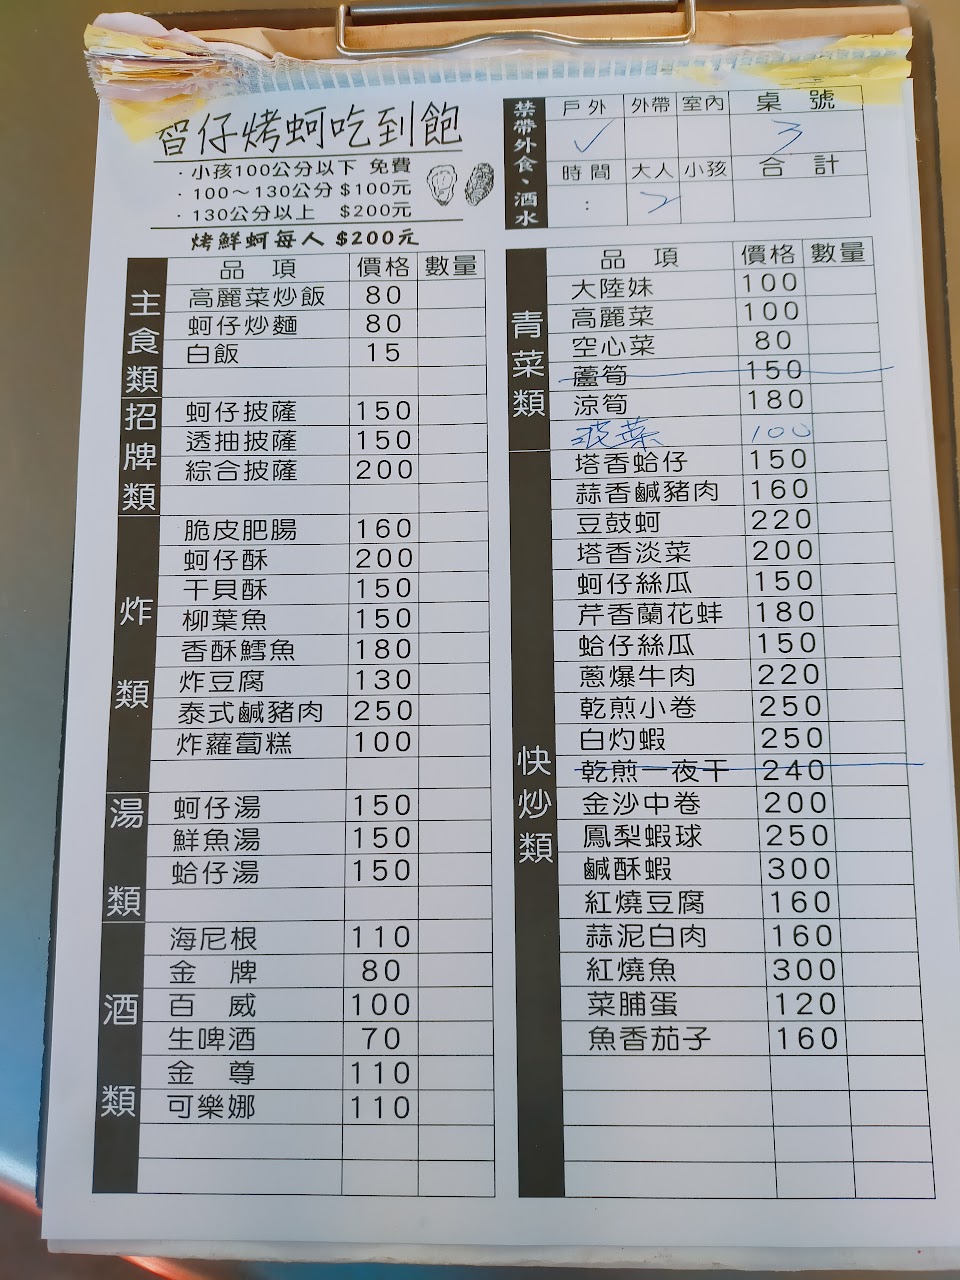 智仔烤蚵吃到飽
・小孩100公分以下 免費
・100～130公分 $100元
・130公分以上 $200元
烤鮮蚵每人 $200元
禁帶外食、酒水
戶外 外帶 室內 桌號
✓ 3
時間 大人 小孩 合計
: 2
品項 價格 數量
主食類
高麗菜炒飯 80
蚵仔炒麵 80
白飯 15
招牌類
蚵仔披薩 150
透抽披薩 150
綜合披薩 200
炸類
脆皮肥腸 160
蚵仔酥 200
干貝酥 150
柳葉魚 150
香酥鱈魚 180
炸豆腐 130
泰式鹹豬肉 250
炸蘿蔔糕 100
湯類
蚵仔湯 150
鮮魚湯 150
蛤仔湯 150
酒類
海尼根 110
金牌 80
百威 100
生啤酒 70
金尊 110
可樂娜 110
品項 價格 數量
青菜類
大陸妹 100
高麗菜 100
空心菜 80
蘆筍 150
涼筍 180
菠菜 100
快炒類
塔香蛤仔 150
蒜香鹹豬肉 160
豆鼓蚵 220
塔香淡菜 200
蚵仔絲瓜 150
芹香蘭花蚌 180
蛤仔絲瓜 150
蔥爆牛肉 220
乾煎小卷 250
白灼蝦 250
乾煎一夜干 240
金沙中卷 200
鳳梨蝦球 250
鹹酥蝦 300
紅燒豆腐 160
蒜泥白肉 160
紅燒魚 300
菜脯蛋 120
魚香茄子 160